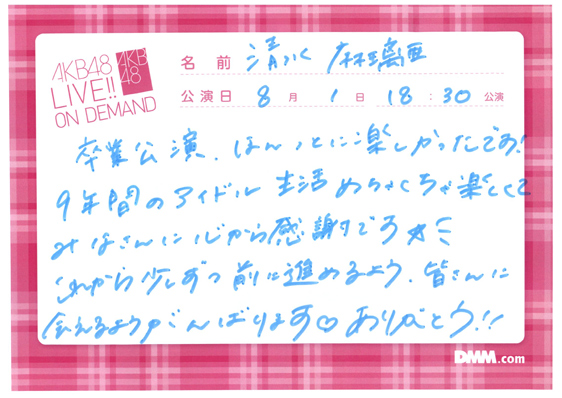 AKB48
LIVE!!
ON DEMAND
AKB
48
名前 清水 麻璃亜
公演日 8月1日 18:30公演
卒業公演、ほんっとに楽しかったです!
9年間のアイドル生活めちゃくちゃ楽しくて
みなさんに心から感謝です
これから少しずつ前に進めるよう、皆さんに
会えるようがんばります♡ ありがとう!!
DMM.com